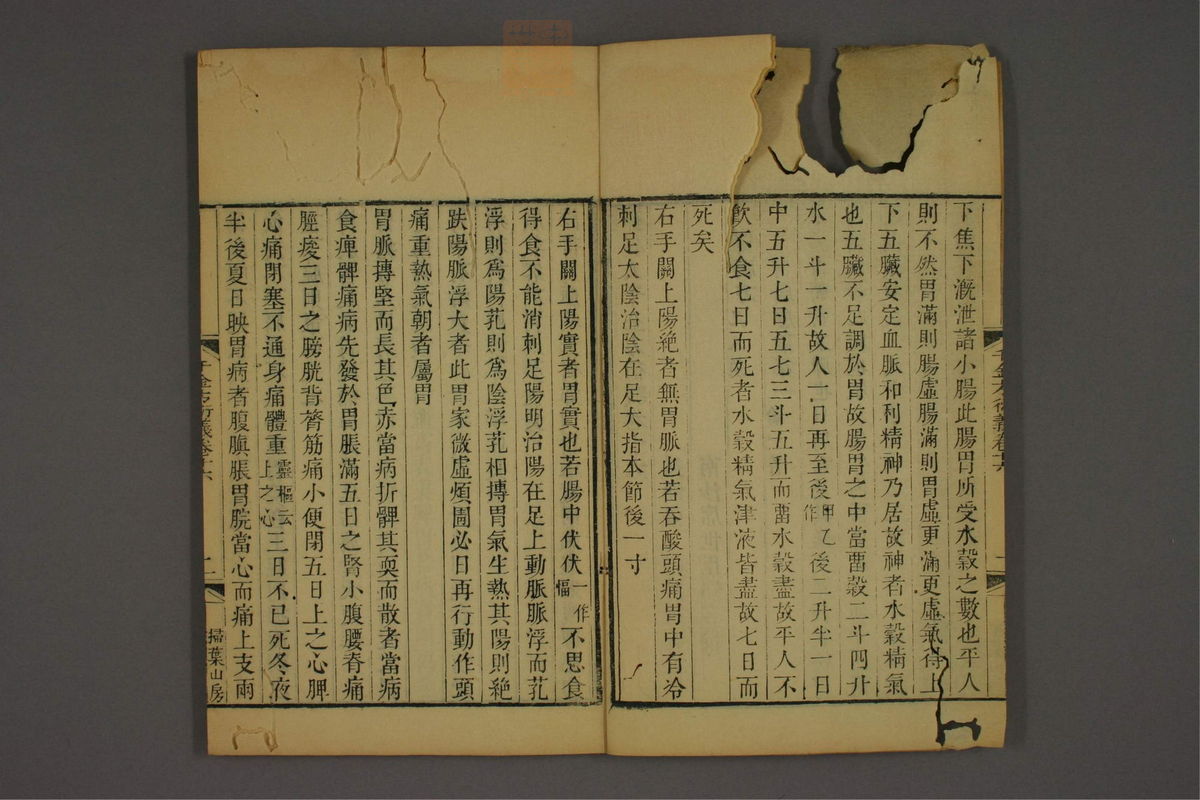 下焦下漑泄諸小腸此腸胃所受水穀之數也平人
則不然胃滿則腸虛腸滿則胃虛更滿更虛氣得上
下五臟安定血脈和利精神乃居故神者水穀精氣
也五臟不足調於胃故腸胃之中當畱穀二斗四升
水一斗一升故人一日再至後甲乙作後二升半一日
中五升七日五七三斗五升而畱水穀盡故平人不
飮不食七日而死者水穀精氣津液皆盡故七日而
死矣
右手關上陽絶者無胃脈也若吞酸頭痛胃中有冷
刺足太陰治陰在足大指本節後一寸
右手關上陽實者胃實也若腸中伏伏一作愊不思食
得食不能消刺足陽明治陽在足上動脈脈浮而芤
浮則爲陽芤則爲陰浮芤相摶胃氣生熱其陽則絶
趺陽脈浮大者此胃家微虛煩圊必日再行動作頭
痛重熱氣朝者屬胃
胃脈摶堅而長其色赤當病折髀其耎而散者當病
食痺髀痛病先發於胃脹滿五日之腎小腹腰脊痛
脛痠三日之膀胱背膂筋痛小便閉五日上之心脾
心痛閉塞不通身痛體重靈樞云上之心三日不已死冬夜
半後夏日昳胃病者腹䐜脹胃脘當心而痛上支兩
千金方衍義卷十六
二
掃葉山房